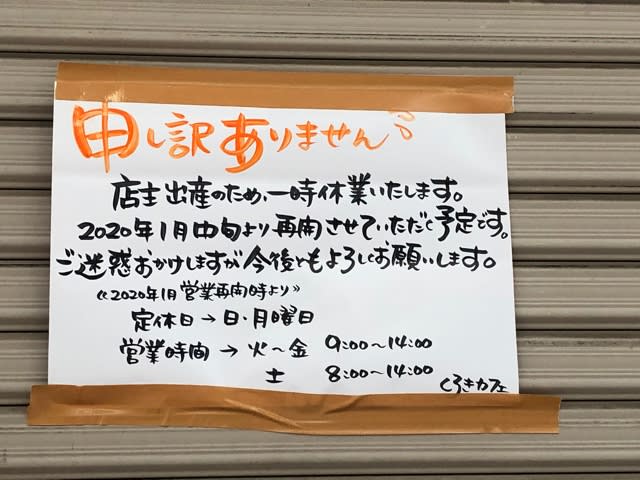 申し訳ありません
店主出産のため、一時休業いたします。
2020年1月中旬より再開させていただく予定です。
ご迷惑おかけしますが今後ともよろしくお願いします。
《2020年1月 営業再開時より》
定休日→日・月曜日
営業時間→火~金 9:00~14:00
土 8:00~14:00
くろきカフェ